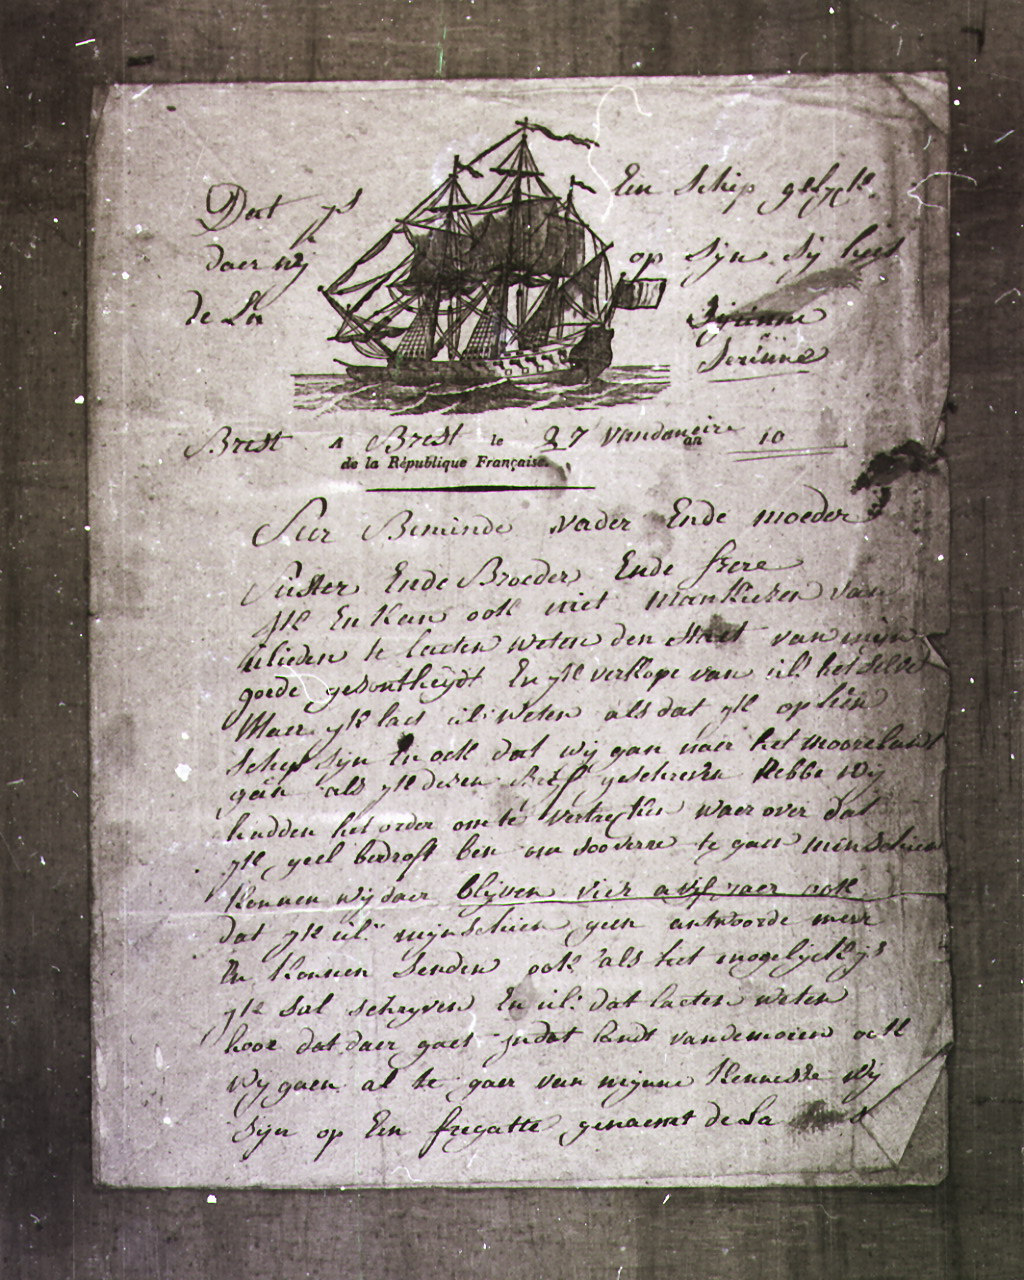 Dat ys Een schip gelyck
daer wij op syn sij heet
de La Syrinne
Serinne
Brest A Brest le 27 vandemeire an 10
de la République Française.
Seer Beminde vader Ende moeder
Suster Ende Broeder Ende frere
yk En kan ook niet mankieren van
ulieden te laeten weten den staet van mijn
goede gesontheydt En yk verhope van ul: het selve
Maer yk laet ul: weten als dat yk op Een
schep syn En ock dat wij gan naer het moorelandt
gaen als yk desen Brief geschreven hebbe wij
hadden het order om te vertrecken waer over dat
yk geel bedroft ben om soo verre te gaen minschien
konnen wij daer blijven vier a vijf jaer ook
dat yk ul: mynschien geen antwoorde meer
En konnen senden ook als het mogelyck ys
yk sal schryven En ul: dat laeten weten
hooe dat daer gaet in dat landt van de moren ock
wy gaen al te gaer van mynne kennesse wy
syn op Een fregatte genaemt de La